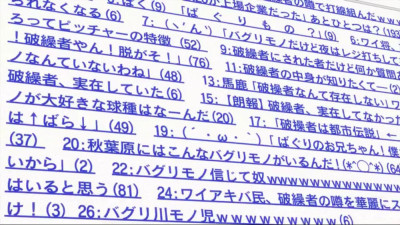 られなくなる(6)　6:ばく(9)　「が上場企業だった」あとひとつは?(193
ろってピッチャーの特徴 (52)　7:(ヽ´ん`)「ばぐりもの?」(9)　8:ワイ将、
!破繰者やん!脱がそ!」(76)　9:破繰者にされた者だけど何か質問
ノなんていないわね」(48)　11:破繰者の中身が知りたくて―(2)
破繰者、実在していた(6)　13:馬鹿「破繰者なんて存在しない」ワ
ノが大好きな球種はなーんだ(20)　15:【朗報】破繰者、実在してなかった
は↑ばら↓」(49)　17:「破繰者は都市伝説」←
(37)　19:(´・ω・`)「ばぐりのお兄ちゃん!僕
20:秋葉原にはこんなバグリモノがいるんだ!(*^◯^*)(64
いから」(2)　22:バグリモノ信じて奴wwwwwwwwwwwww
はいると思う(81)　24:ワイアキバ民、破繰者の噂を華麗にス
け!(3) 26:バグリ川モノ児wwwwwwww(6)